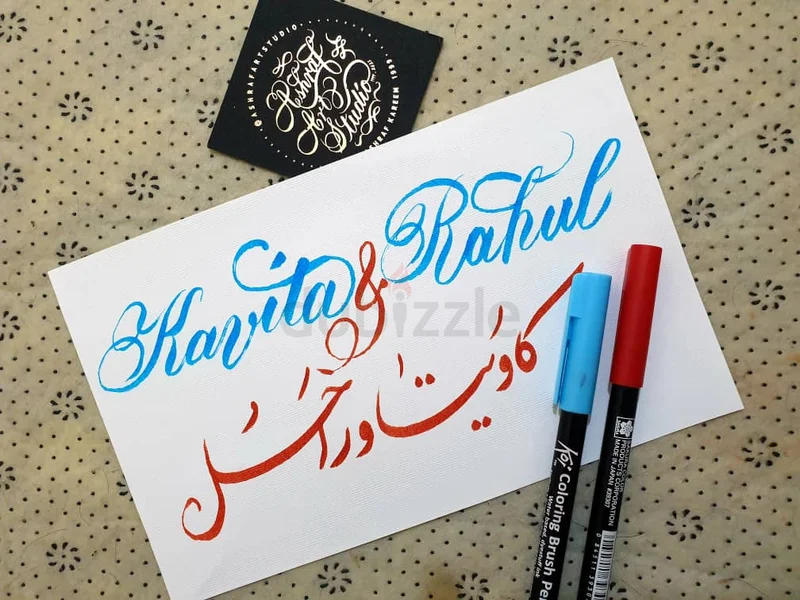 @ASHRAFARTSTUDIO
Ashraf
Art
Studio
SHRAF KAREEM
Kavita & Rahul
كاويتا وراحل
dubizzle
Koi Coloring Brush Pen
Water based dyestuff ink
PRODUCTS CORPORATION
MADE IN JAPAN